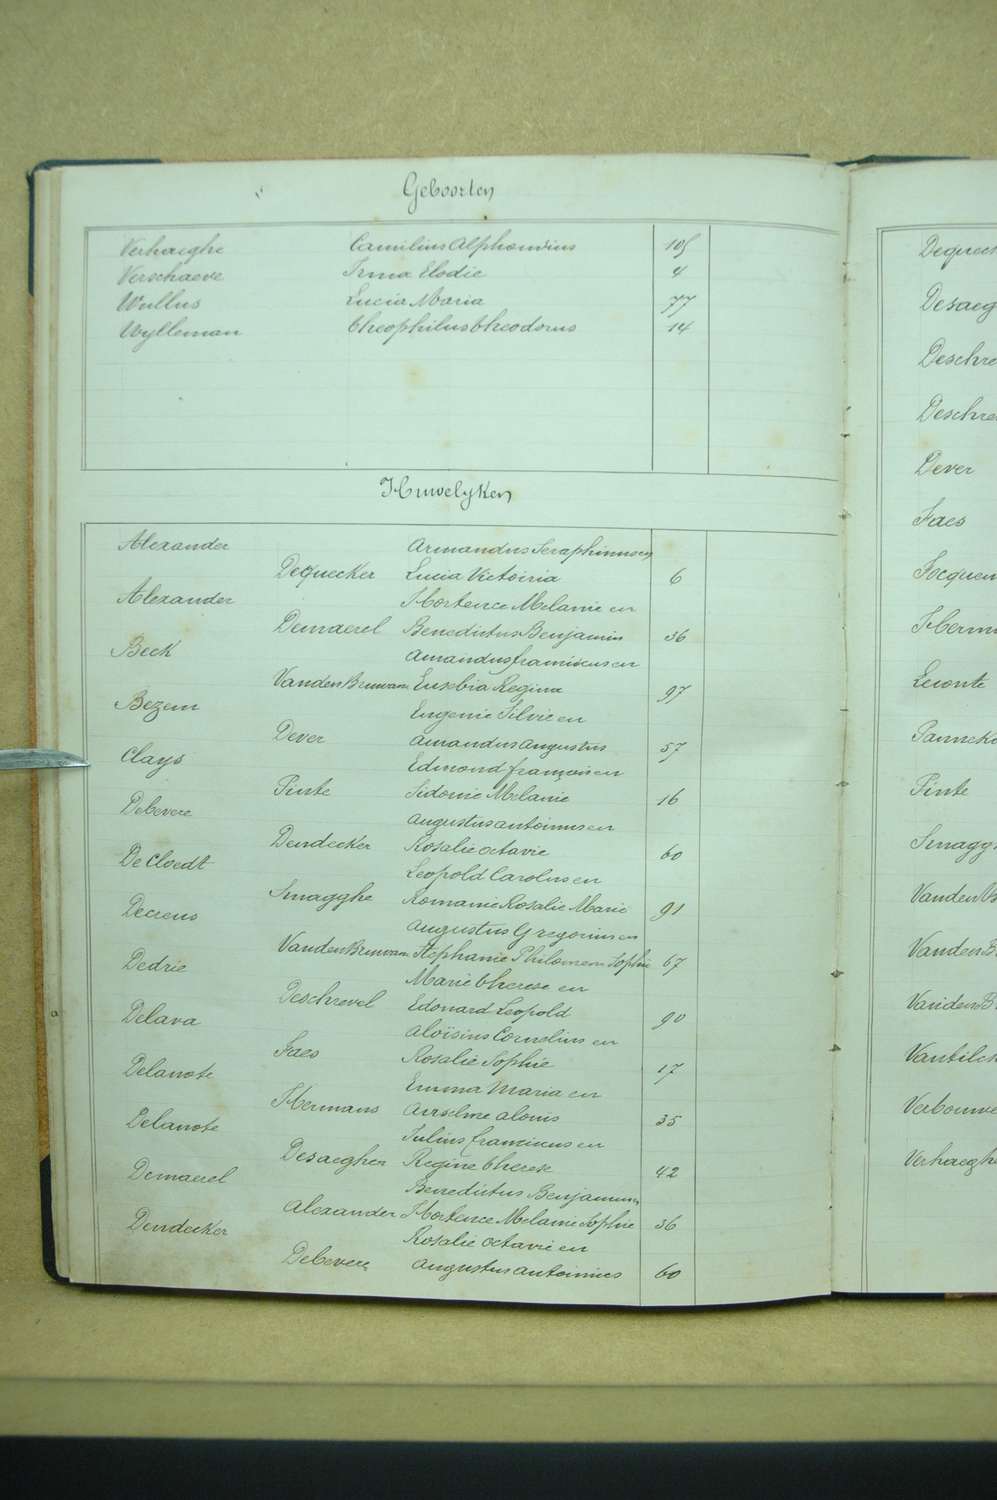 Geboorten
Verhaeghe Camilius Alphonsius 105
Verschaeve Irma Elodie 4
Wullus Lucia Maria 77
Wylleman Theophilus Theodorus 14
Huwelyken
Alexander Armandus Seraphinus en
Dequecker Lucia Victoiria 6
Alexander Hortence Melanie en
Demaerel Benedictus Benjamin 36
Beck Amandus francisus en
Vanden Bruwane Eusebia Regina 97
Bezem Eugenie Silvie en
Dever Amandus Augustus 57
Clays Edmond françois en
Pinte Sidonie Melanie 16
Debevere Augustus antoinus en
Dendecker Rosalie octavie 60
De Cloedt Leopold Carolus en
Smagghe Romanie Rosalie Marie 91
Decreus Augustus Gregorius en
Vanden Bruwane Stephanie Philomene Sophie 67
Dedrie Marie Therese en
Deschrevel Edouard Leopold 90
Delava Aloïsius Cornelius en
Faes Rosalie Sophie 17
Delanote Emma Maria en
Hermans Anselme alouis 35
Delanote Julius francisus en
Desaegher Regine Therese 42
Demaerel Benedictus Benjaminus
Alexander Hortence Melanie Sophie 36
Dendecker Rosalie octavie en
Debevere Augustus Antoinius 60
Dequeck
Desaeg
Deschre
Deschre
Dever
Faes
Focquen
Herm
Leconte
Panneko
Pinte
Smaggh
Vanden
Vanden B
Vanden B
Vantilch
Verbouwe
Verhaegh